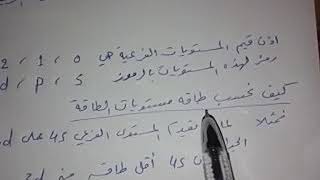 اذن قيم المستويات الفرعية هي 0 ، 1 ، 2
رمز لهذه المستويات بالرموز d ، P ، S
كيف نحسب طاقه مستويات الطاقة
فمثلا لما المستوى الفرعي 4s على d
4s أقل طاقه من d